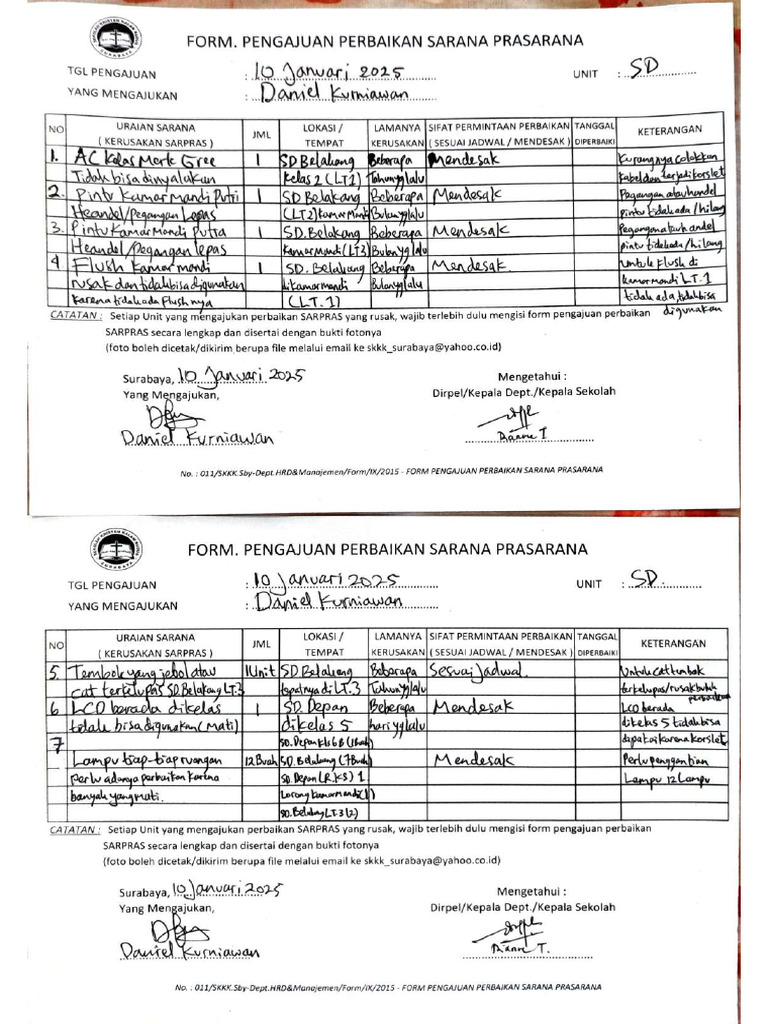 FORM. PENGAJUAN PERBAIKAN SARANA PRASARANA
TGL PENGAJUAN : 10 Januari 2025 UNIT : SD
YANG MENGAJUKAN : Daniel Kurniawan
NO URAIAN SARANA ( KERUSAKAN SARPRAS ) JML LOKASI / TEMPAT LAMANYA KERUSAKAN SIFAT PERMINTAAN PERBAIKAN ( SESUAI JADWAL / MENDESAK ) TANGGAL DIPERBAIKI KETERANGAN
1. AC Kelas Merk Gree 1 SD Belakang Beberapa Mendesak Kurangnya colokkan
Tidak bisa dinyalakan Kelas 2 (LT1) Tahun yg lalu kabel den terjadi korslet
2. Pintu Kamar Mandi Putri 1 SD. Belakang Beberapa Mendesak Pegangan atau handel
Heandel/Pegangan Lepas (LT2) Kamar Mandi Bulan yg lalu pintu tidak ada / hilang
3. Pintu Kamar Mandi Putra 1 SD. Belakang Beberapa Mendesak Pegangan atau handel
Heandel/Pegangan lepas Kamar Mandi (LT3) Bulan yg lalu pintu tidak ada / hilang
4 Flush kamar mandi 1 SD. Belakang Beberapa Mendesak. Untuk flush di
rusak dan tidak bisa digunakan di kamar mandi Bulan yg lalu kamar mandi LT. 1
karena tidak ada flush nya (LT. 1) tidak ada tidak bisa
digunakan
CATATAN : Setiap Unit yang mengajukan perbaikan SARPRAS yang rusak, wajib terlebih dulu mengisi form pengajuan perbaikan
SARPRAS secara lengkap dan disertai dengan bukti fotonya
(foto boleh dicetak/dikirim berupa file melalui email ke skkk_surabaya@yahoo.co.id)
Surabaya, 10 Januari 2025 Mengetahui :
Yang Mengajukan, Dirpel/Kepala Dept./Kepala Sekolah
Daniel Kurniawan
No. : 011/SKKK.Sby-Dept.HRD&Manajemen/Form/IX/2015 - FORM PENGAJUAN PERBAIKAN SARANA PRASARANA
FORM. PENGAJUAN PERBAIKAN SARANA PRASARANA
TGL PENGAJUAN : 10 Januari 2025 UNIT : SD.
YANG MENGAJUKAN : Daniel Kurniawan
NO URAIAN SARANA ( KERUSAKAN SARPRAS ) JML LOKASI / TEMPAT LAMANYA KERUSAKAN SIFAT PERMINTAAN PERBAIKAN ( SESUAI JADWAL / MENDESAK ) TANGGAL DIPERBAIKI KETERANGAN
5. Tembok yang jebol atau 1 Unit SD Belakang Beberapa Sesuai Jadwal. Untuk cat tembak
cat terkelupas SD. Belakang LT.3 tepatnya di LT.3 Tahun yg lalu terkelupas/rusak butuh perbaikan
6 LCD berada dikelas 1 SD. Depan Beberapa Mendesak LCD berada
tidak bisa digunakan (Mati) dikelas 5 hari yg lalu dikelas 5 tidak bisa
7 SD. Depan Kls 6B (1 Buah) dapakai karena korslet
Lampu tiap-tiap ruangan 12 Buah SD. Belakang (7 Buah) Mendesak Perlu penggantian
perlu adanya perbaikan karena SD. Depan (R.KS) 1 Lampu 12 Lampu
banyak yang mati. Lorong Kamar mandi (1)
SD. Belakang LT.3 (2)
CATATAN : Setiap Unit yang mengajukan perbaikan SARPRAS yang rusak, wajib terlebih dulu mengisi form pengajuan perbaikan
SARPRAS secara lengkap dan disertai dengan bukti fotonya
(foto boleh dicetak/dikirim berupa file melalui email ke skkk_surabaya@yahoo.co.id)
Surabaya, 10 Januari 2025 Mengetahui :
Yang Mengajukan, Dirpel/Kepala Dept./Kepala Sekolah
Daniel Kurniawan
No. : 011/SKKK.Sby-Dept.HRD&Manajemen/Form/IX/2015 - FORM PENGAJUAN PERBAIKAN SARANA PRASARANA